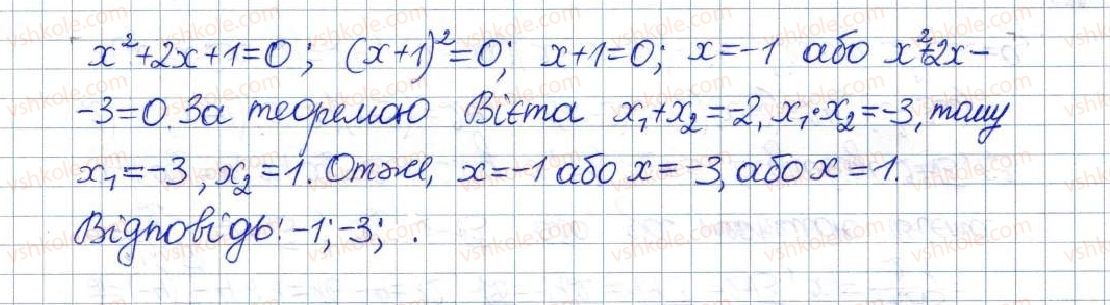 x²+2x+1=0; (x+1)²=0; x+1=0; x=-1 або x²+2x-
-3=0. За теоремою Вієта x₁+x₂=-2, x₁·x₂=-3, тому
x₁=-3, x₂=1. Отже, x=-1 або x=-3, або x=1.
Відповідь: -1; -3; .